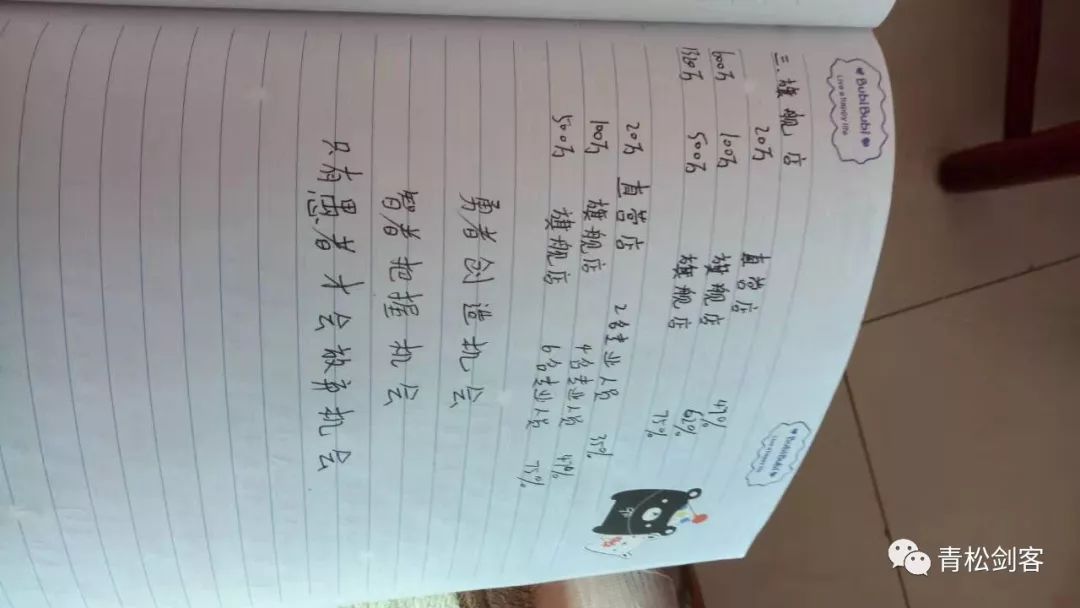 BubiBubi
Live a happy life
BubiBubi
三.旗舰店
20万 直营店 47%
600万 100万 旗舰店 62%
500万 旗舰店 75%
20万 直营店 2名专业人员 35%
100万 旗舰店 4名专业人员 47%
500万 旗舰店 6名专业人员 75%
勇者创造机会
智者把握机会
只有愚者才会放弃机会
青松剑客